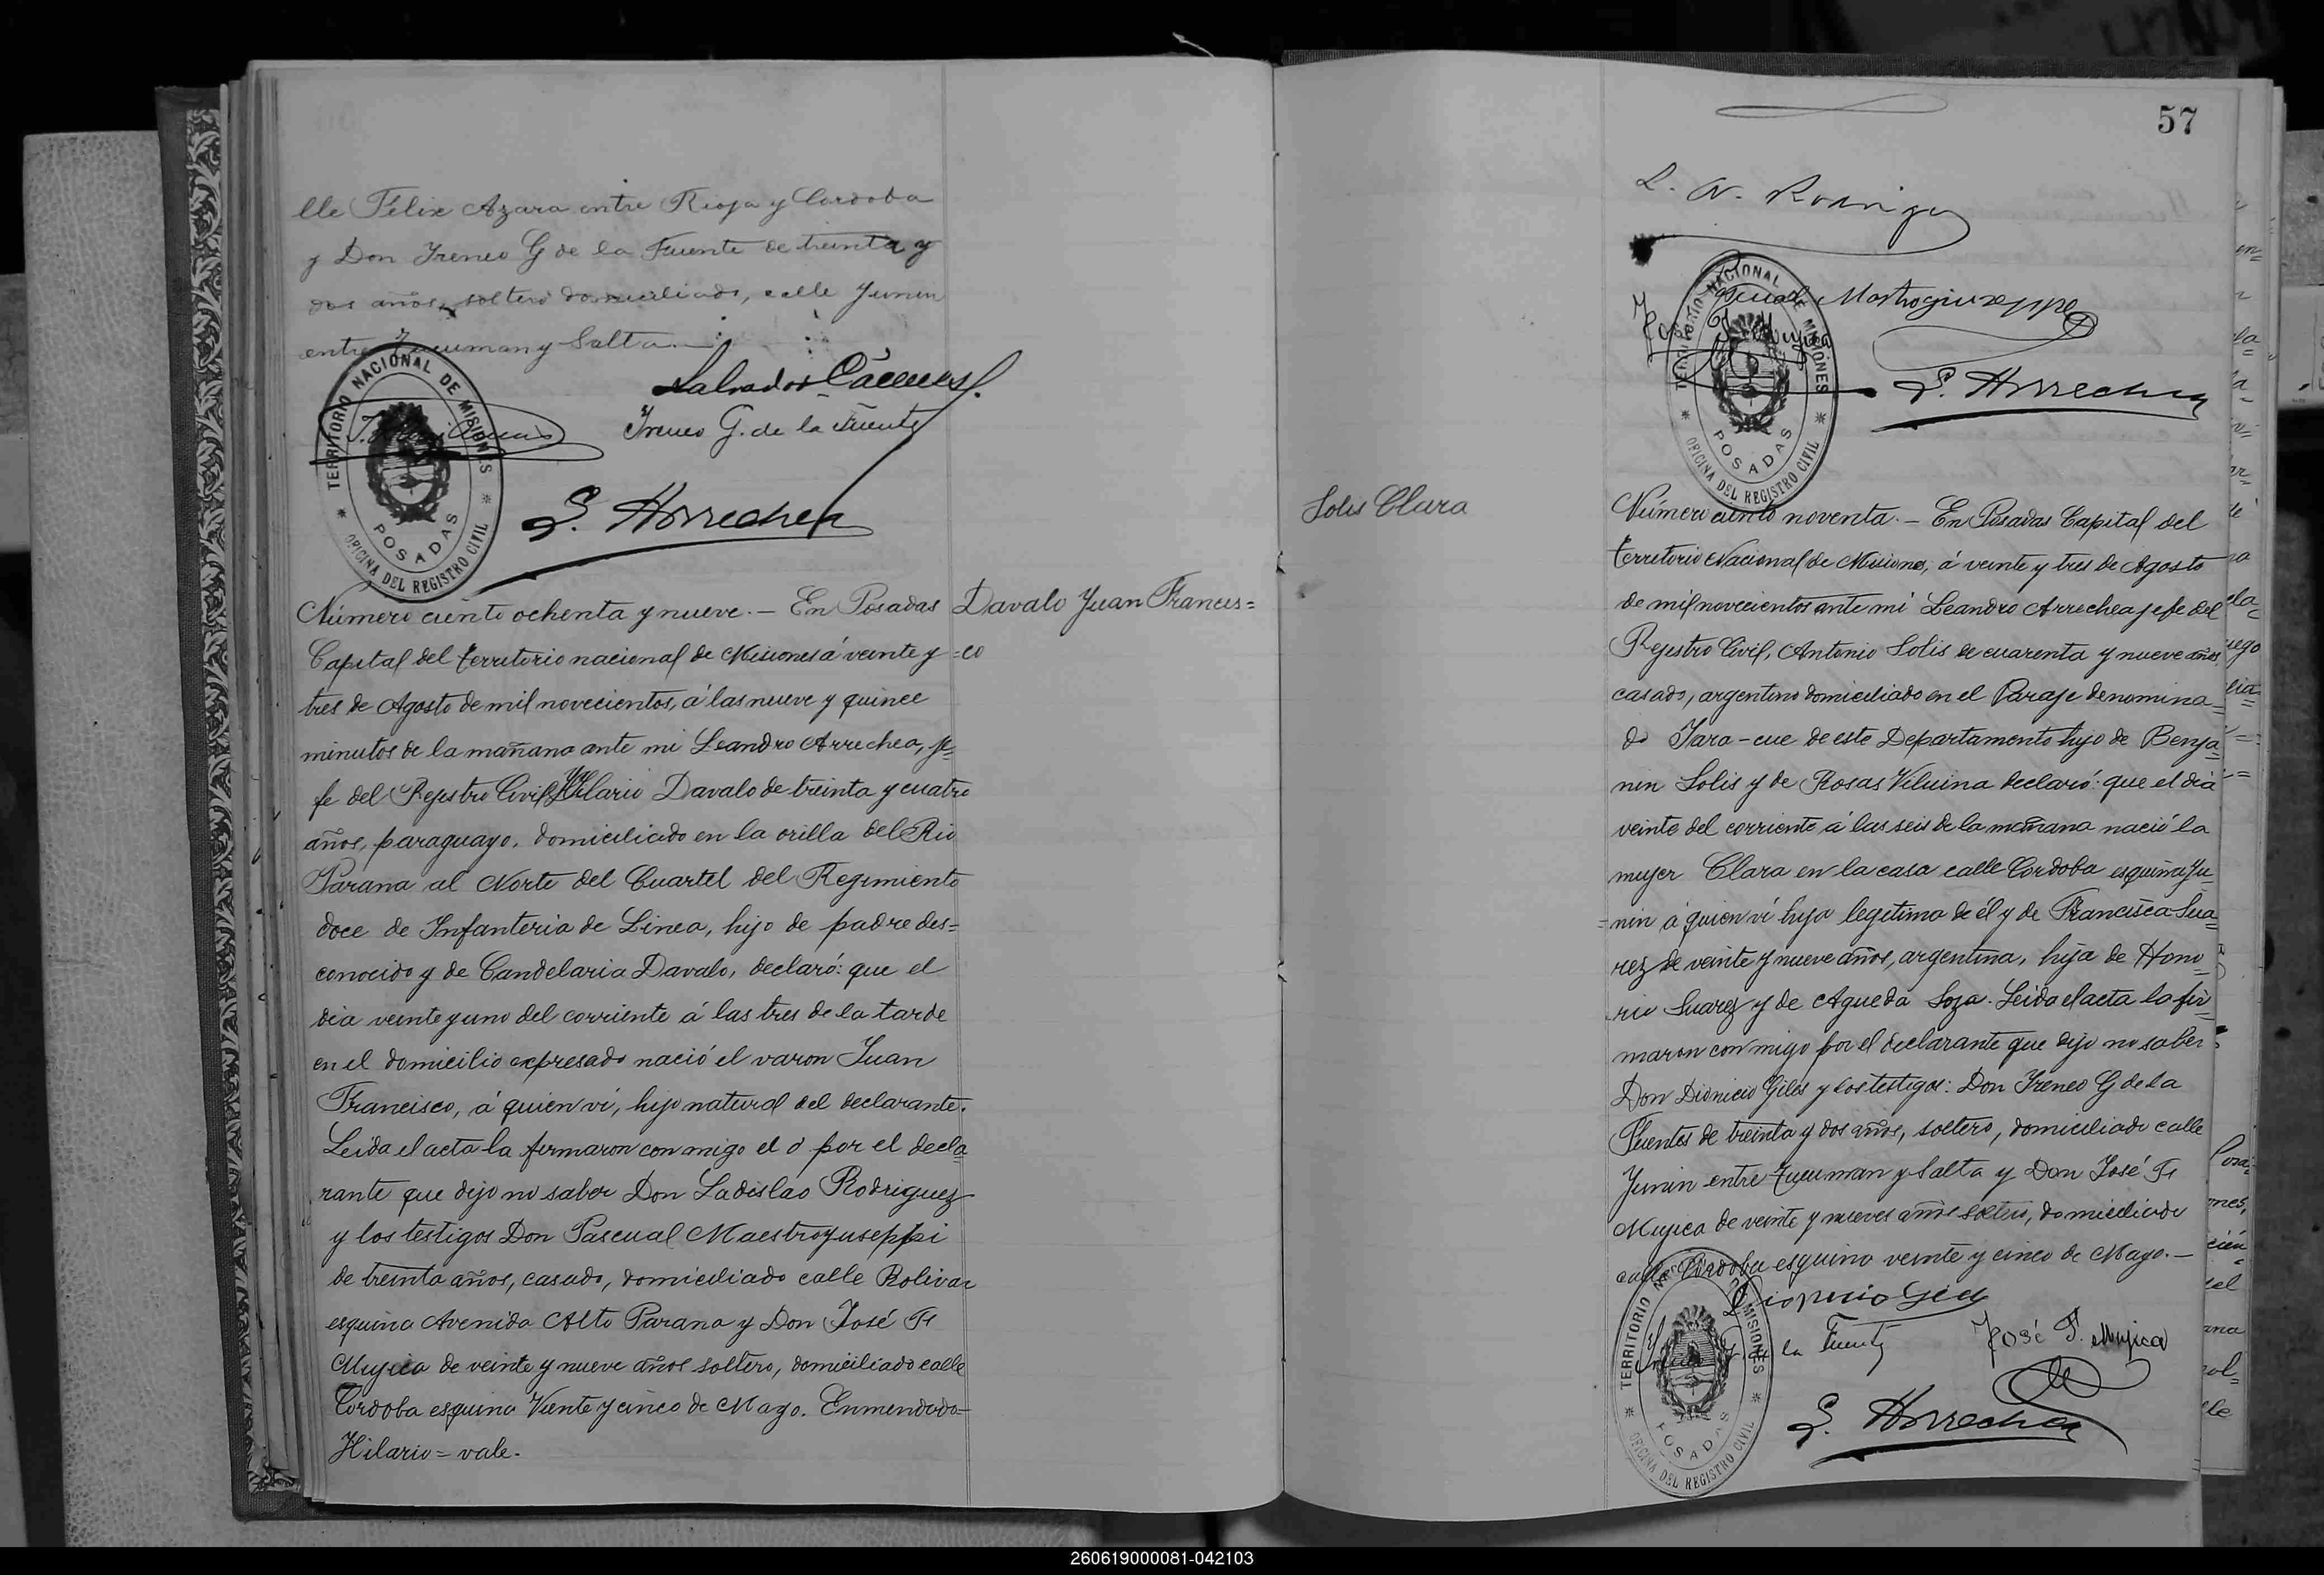 lle Felix Azara entre Rioja y Cordoba
y Don Ireneo G de la Fuente de treinta y
dos años, soltero domiciliado, calle Junin
entre Tucuman y Salta.—
TERRITORIO NACIONAL DE MISIONES
OFICINA DEL REGISTRO CIVIL
POSADAS
Salvador
Ireneo G. de la Fuente
L. Arrechea
Número ciento ochenta y nueve.— En Posadas
Davalo Juan Francis=
Capital del territorio nacional de Misiones á veinte y
=co
tres de Agosto de mil novecientos, á las nueve y quince
minutos de la mañana ante mi Leandro Arrechea, je=
fe del Rejistro Civil, Hilario Davalo de treinta y cuatro
años, paraguayo, domiciliado en la orilla del Rio
Parana al Norte del Cuartel del Regimiento
doce de Infanteria de Linea, hijo de padre des=
conocido y de Candelaria Davalo, declaró: que el
dia veinte y uno del corriente á las tres de la tarde
en el domicilio expresado nació el varon Juan
Francisco, á quien vi, hijo natural del declarante.
Leida el acta la firmaron conmigo el d por el decla=
rante que dijo no saber Don Ladislao Rodriguez
y los testigos Don Pascual Maestroyuseppi
de treinta años, casado, domiciliado calle Bolivar
esquina Avenida Alto Parana y Don José F.
Mujica de veinte y nueve años soltero, domiciliado calle
Cordoba esquina Viente y cinco de Mayo. Enmendado=
Hilario= vale.
57
L. N. Rodrigu
Pascual Mastrogiuseppe
José F. Mujica
TERRITORIO NACIONAL DE MISIONES
OFICINA DEL REGISTRO CIVIL
POSADAS
L. Arrechea
Solis Clara
Número ciento noventa.— En Posadas Capital del
territorio Nacional de Misiones, á veinte y tres de Agosto
de mil novecientos ante mi Leandro Arrechea jefe del
Rejistro Civil, Antonio Solis de cuarenta y nueve años
casado, argentino domiciliado en el Paraje denomina=
do Jara-cue de este Departamento hijo de Benja=
nin Solis y de Rosas Viluina declaró: que el dia
veinte del corriente á las seis de la mañana nació la
mujer Clara en la casa calle Cordoba esquina Ju=
=nin á quien vi hija legitima de él y de Francisca Sua=
rez de veinte y nueve años, argentina, hija de Hono=
rio Suarez y de Agueda Soza. Leida el acta la fir=
maron conmigo por el declarante que dijo no saber
Don Dionicio Giles y los testigos: Don Ireneo G de la
Fuentes de treinta y dos años, soltero, domiciliado calle
Junin entre Tucuman y Salta y Don José F.
Mujica de veinte y nueves años soltero, domiciliado
calle Cordoba esquina veinte y cinco de Mayo.—
Dionicio
Ireneo G. de la Fuente
José F. Mujica
TERRITORIO NACIONAL DE MISIONES
OFICINA DEL REGISTRO CIVIL
POSADAS
L. Arrechea
260619000081-042103